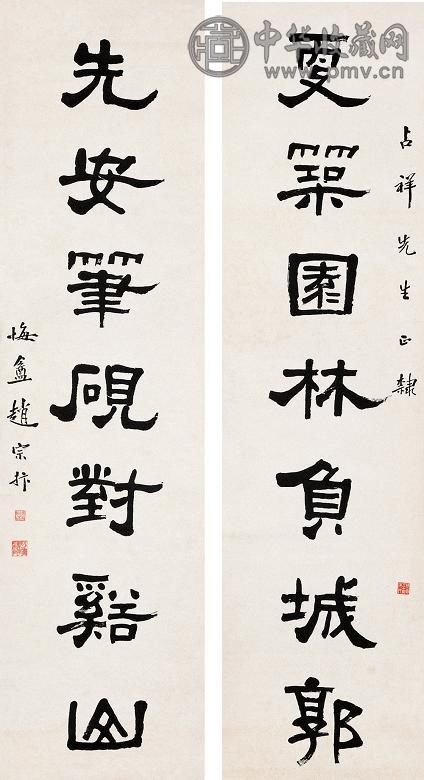 中华收藏网
www.pmv.cn
占祥先生正隸
更築園林負城郭
先安筆硯對谿山
悔盦趙宗抃